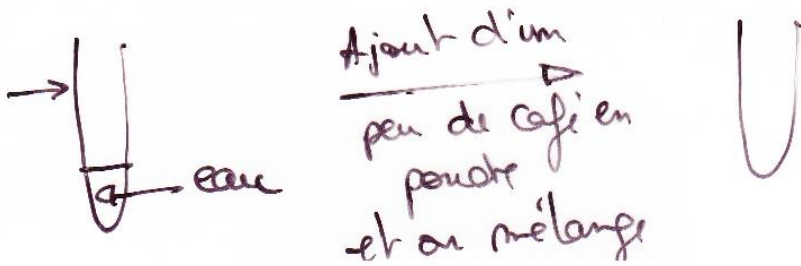 eau
Ajout d'un
peu de café en
poudre
et on mélange